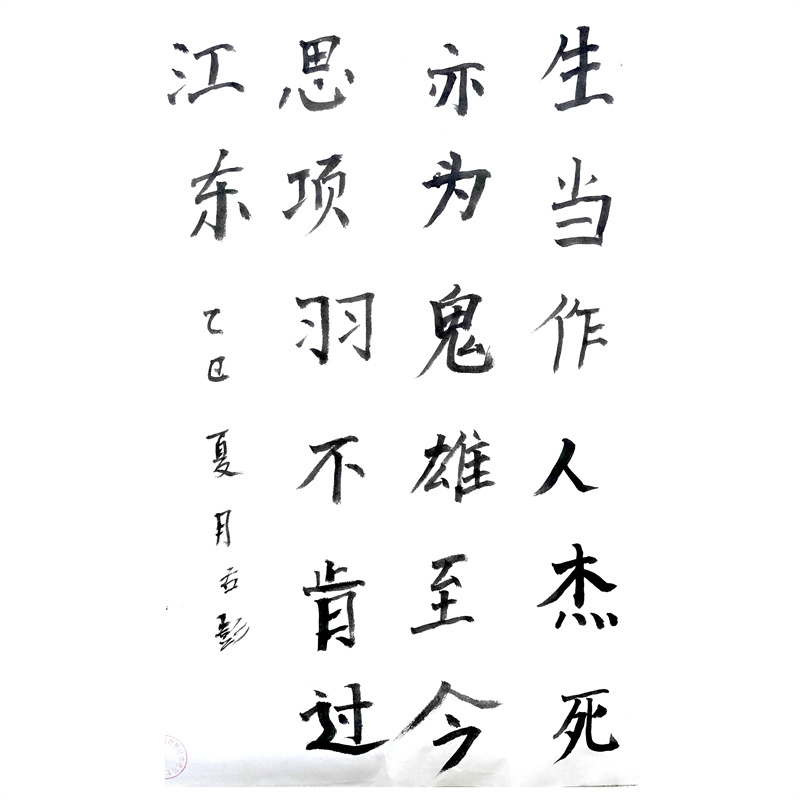 生当作人杰死
亦为鬼雄至今
思项羽不肯过
江东
乙巳夏月云彭